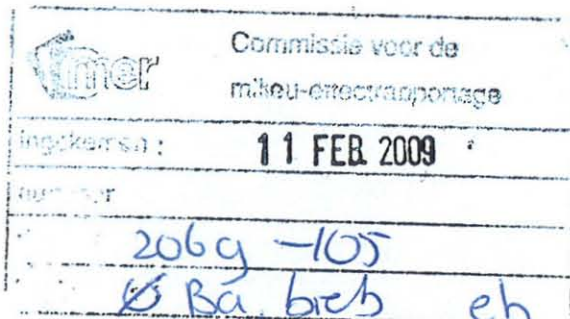 mer
Commissie voor de
milieu-effectrapportage
ingekomen :
11 FEB. 2009
nummer
2069 -105
Ba. bieb eh